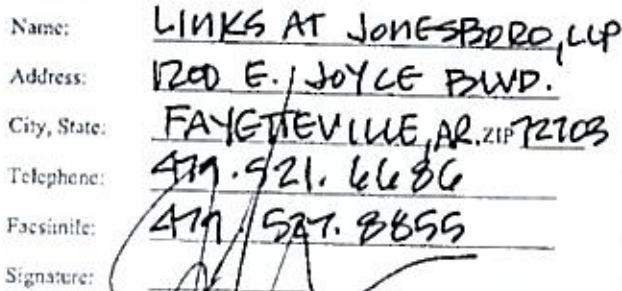 Name: LINKS AT JONESBORO, LLP
Address: 1200 E. JOYCE BLVD.
City, State: FAYETTEVILLE, AR. ZIP 72703
Telephone: 479.521.6686
Facsimile: 479.527.8855
Signature: